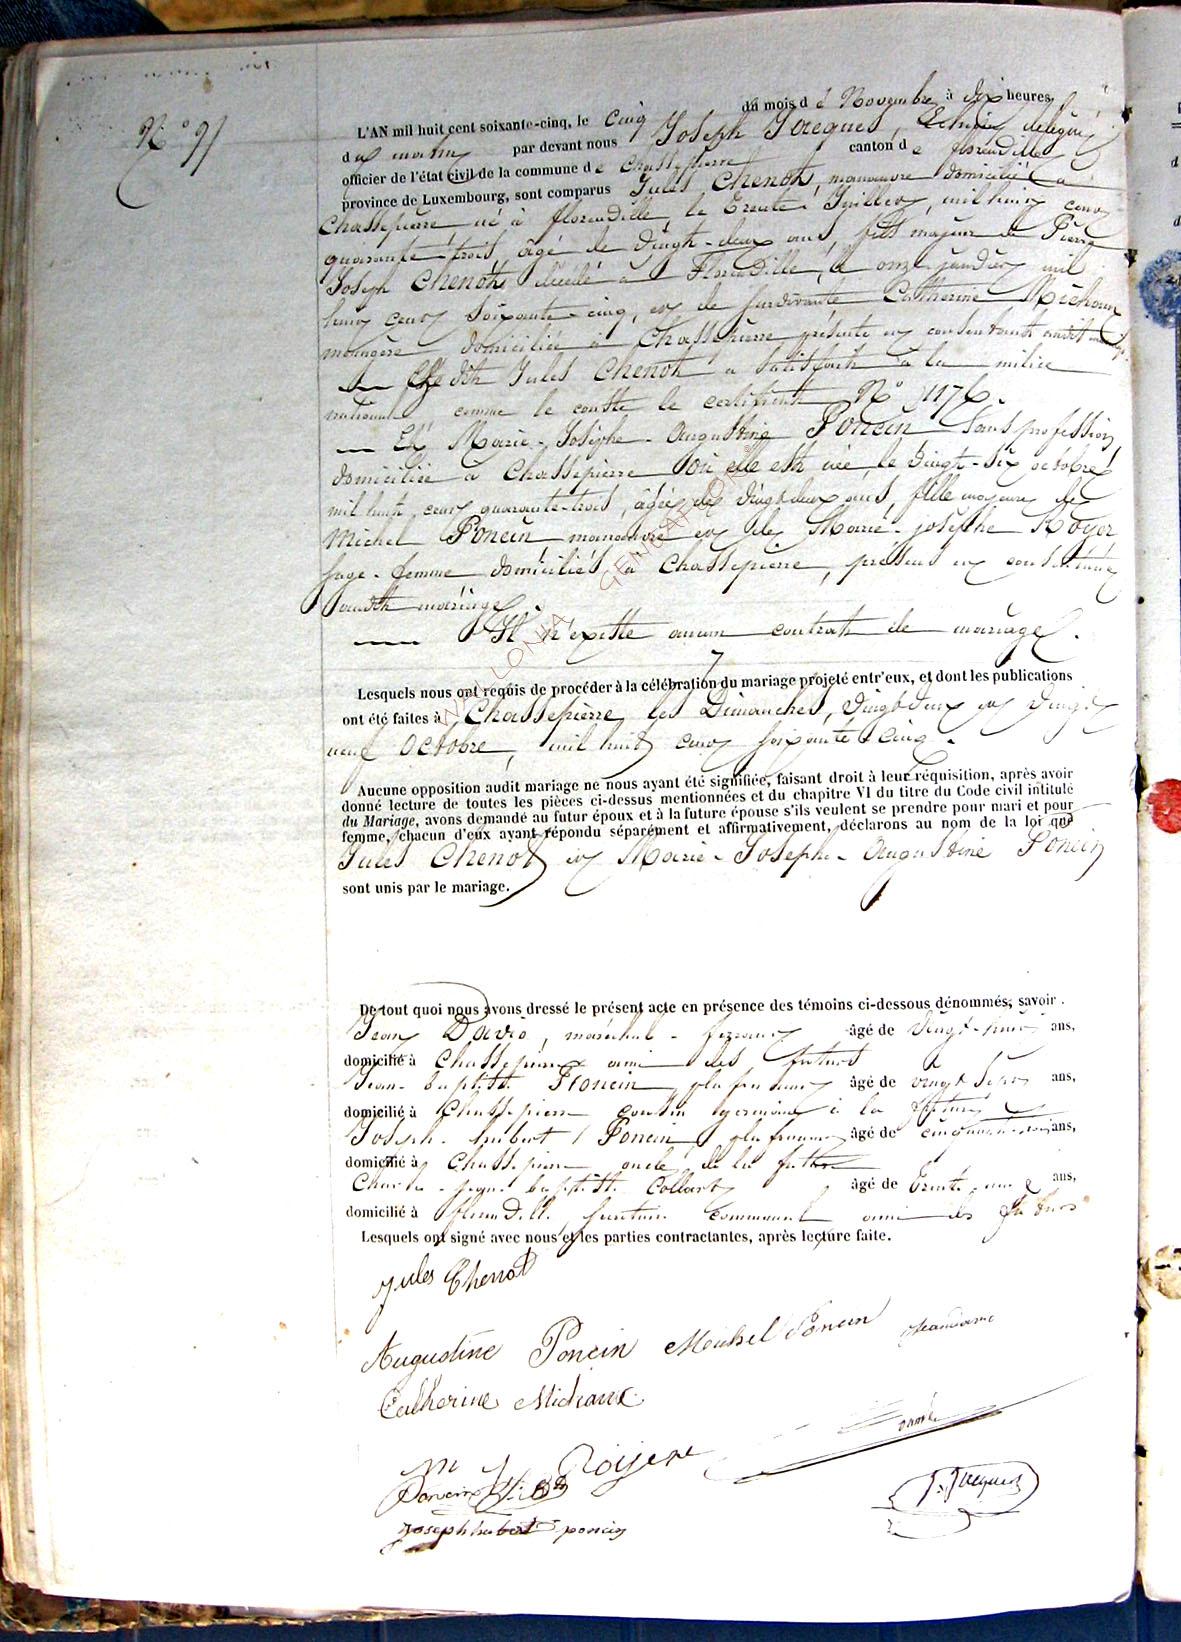 N° 91
L'AN mil huit cent soixante-cinq, le cinq du mois de Novembre à dix heures
du matin par devant nous Joseph Jacques, Echevin délégué
officier de l'état civil de la commune de Chassepierre canton de florenville
province de Luxembourg, sont comparus Jules Chenot, manœuvre domicilié à
Chassepierre, né à florenville, le trente Juillet, mil huit cent
quarante-trois, âgé de vingt-deux ans, fils majeur de Pierre
Joseph Chenot, décédé à Florenville, le onze janvier mil
huit cent soixante-cinq, et de survivante Catherine Michaux
ménagère domiciliée à Chassepierre présente et consentante audit mariage.
Le dit Jules Chenot a satisfait à la milice
nationale comme le conste le certificat N° 1176.
Et Marie-Josèphe-Augustine Poncin Sans profession
domiciliée à Chassepierre où elle est née, le vingt-six octobre
mil huit cent quarante-trois, âgée de vingt deux ans, fille majeure de
Michel Poncin manœuvre et de Marie-josèphe Royer
sage-femme domiciliés à Chassepierre, présens et consentans
audit mariage
Il n'existe aucun contrat de mariage.
Lesquels nous ont requis de procéder à la célébration du mariage projeté entr'eux, et dont les publications
ont été faites à Chassepierre, les Dimanches, vingt deux et vingt
neuf Octobre, mil huit cent soixante-cinq.
Aucune opposition audit mariage ne nous ayant été signifiée, faisant droit à leur réquisition, après avoir
donné lecture de toutes les pièces ci-dessus mentionnées et du chapitre VI du titre du Code civil intitulé
du Mariage, avons demandé au futur époux et à la future épouse s'ils veulent se prendre pour mari et pour
femme, chacun d'eux ayant répondu séparément et affirmativement, déclarons au nom de la loi que
Jules Chenot et Marie-Josephe-Augustine Poncin
sont unis par le mariage.
De tout quoi nous avons dressé le présent acte en présence des témoins ci-dessous dénommés, savoir.
Jean David, maréchal-ferrant âgé de vingt-huit ans,
domicilié à Chassepierre ami des futurs
Jean-baptiste Poncin, plafonneur âgé de vingt sept ans,
domicilié à Chassepierre cousin germain à la future
Joseph-hubert Poncin, plafonneur âgé de cinquante ans,
domicilié à Chassepierre oncle de la future
Charles-jean-baptiste Collart âgé de trente-un ans,
domicilié à florenville, secrétaire communal ami des futurs
Lesquels ont signé avec nous et les parties contractantes, après lecture faite.
Jules Chenot
Augustine Poncin Michel Poncin
Catherine Michaux
M J Roijere
Poncin J. Bte
Joseph hubert poncin
J. Jacques
WALLONIA GENEAF.ORG